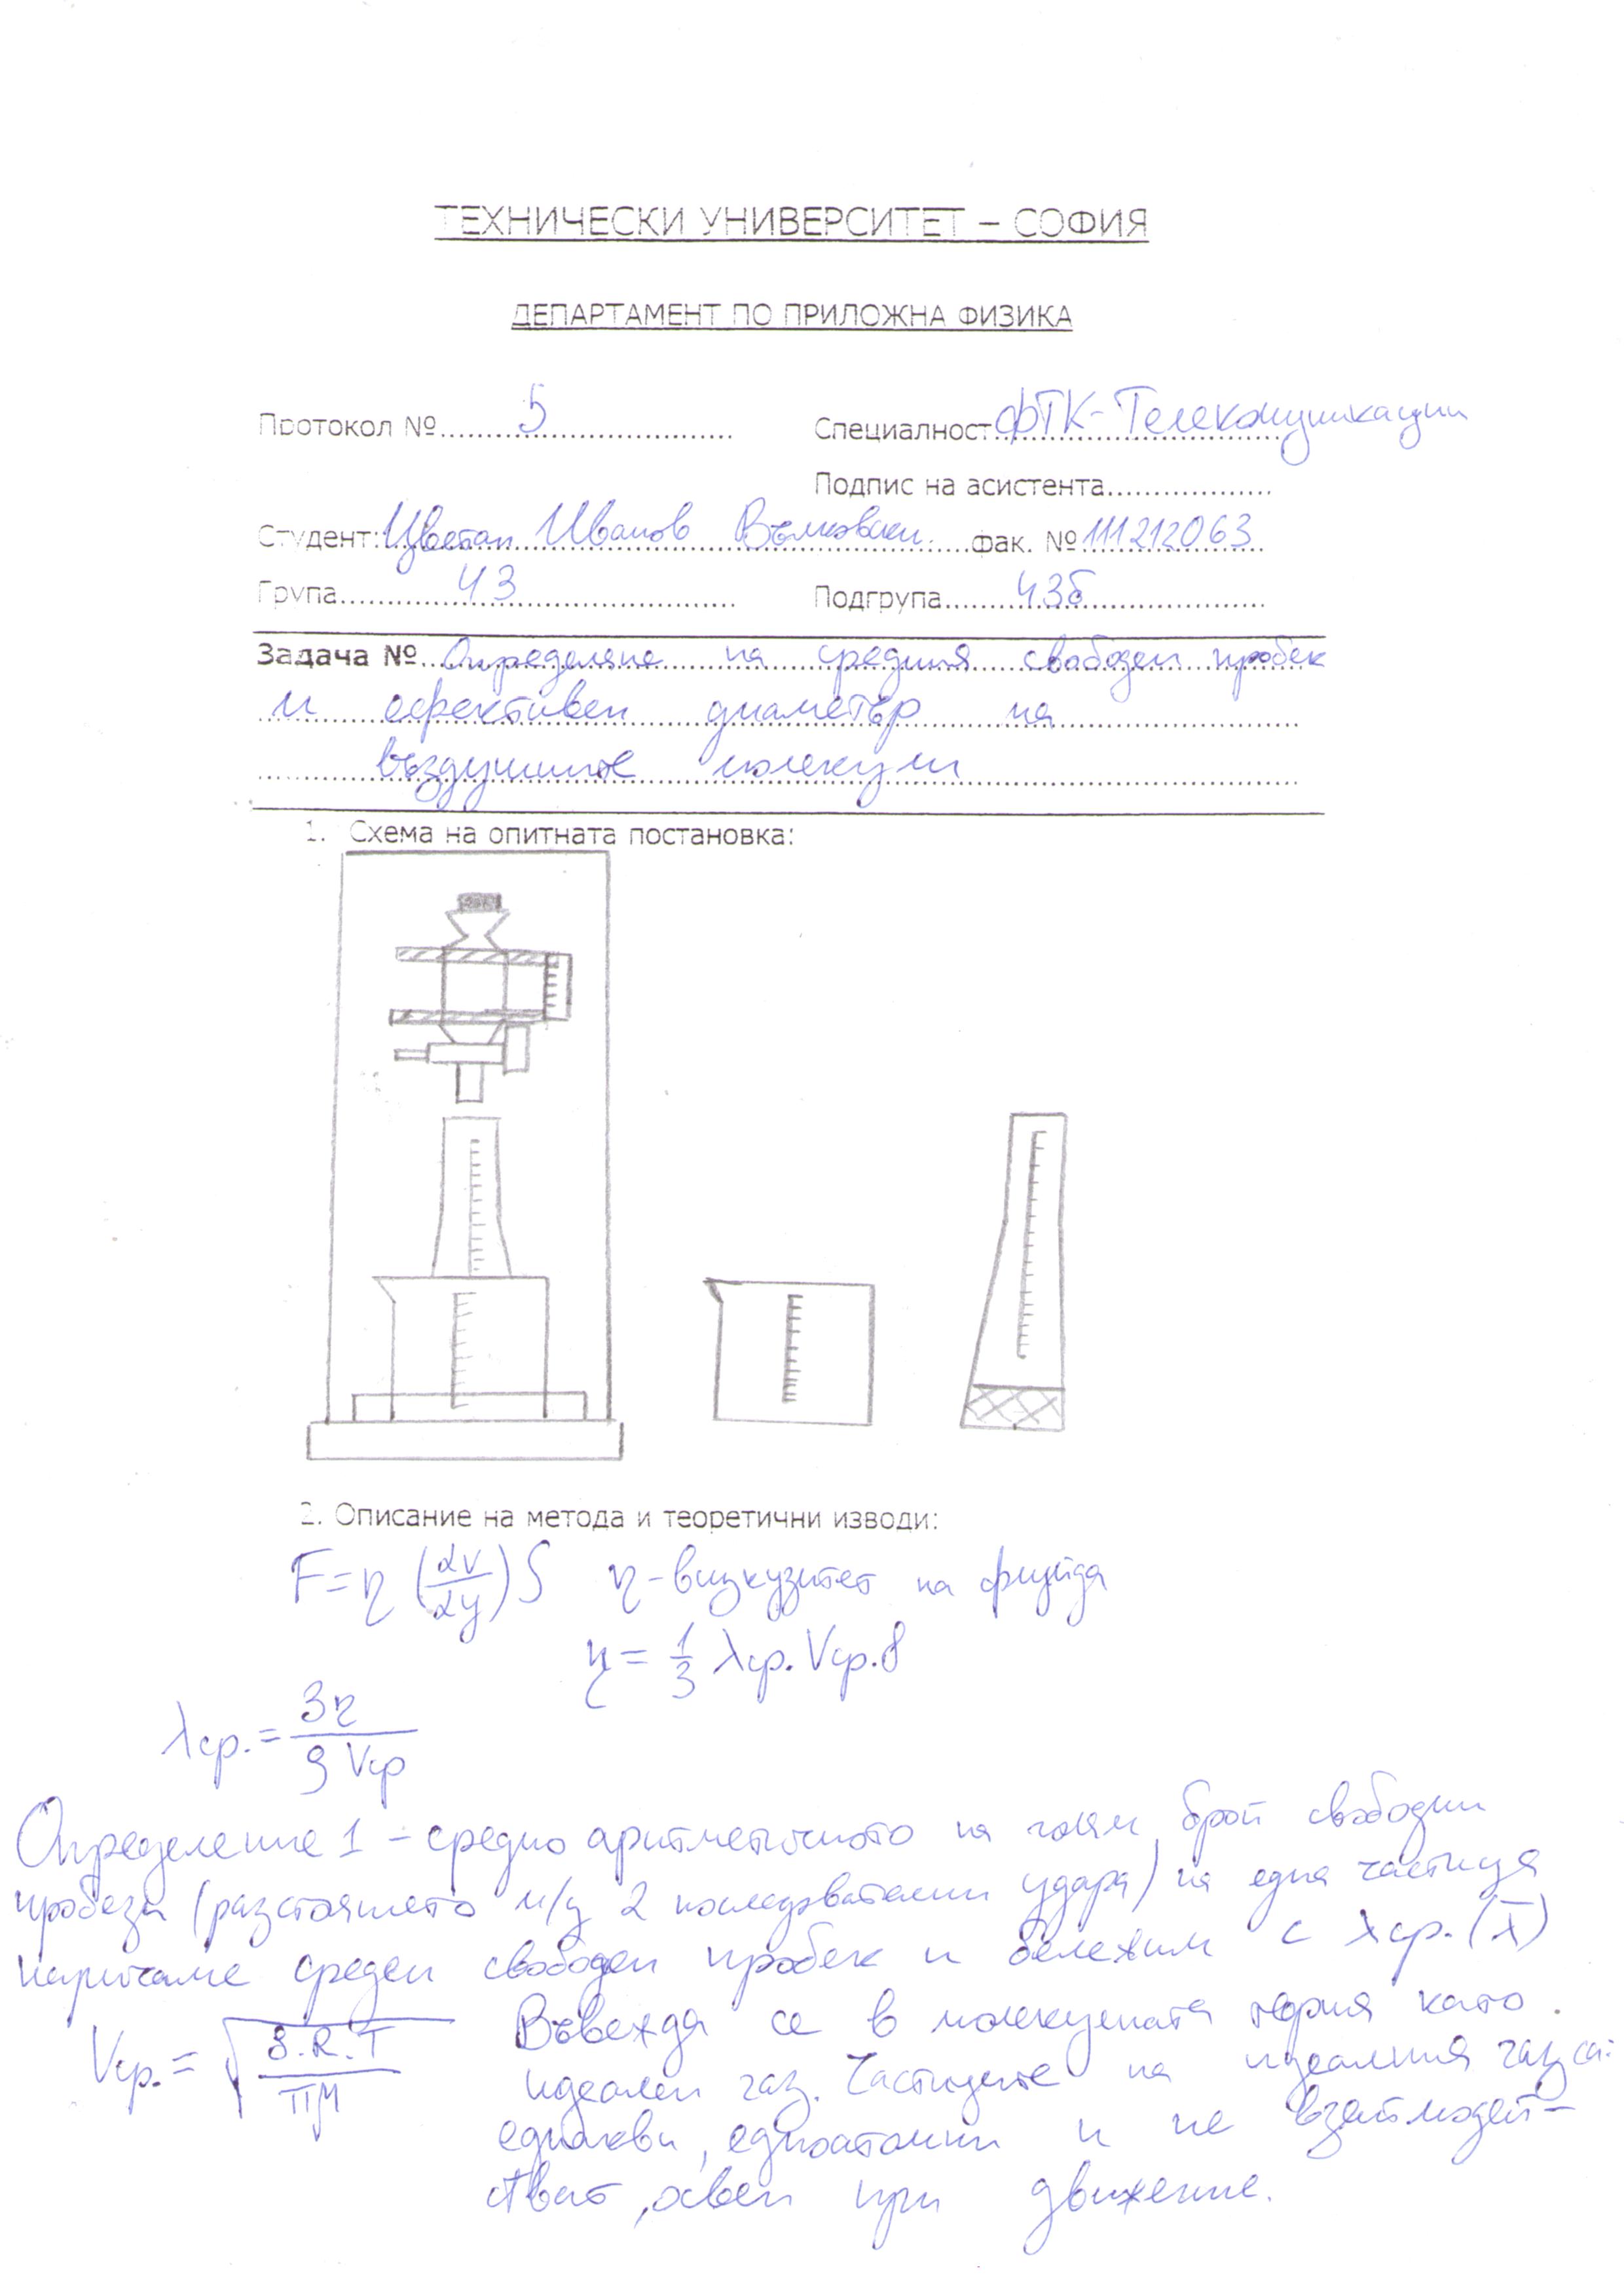 ТЕХНИЧЕСКИ УНИВЕРСИТЕТ – СОФИЯ
ДЕПАРТАМЕНТ ПО ПРИЛОЖНА ФИЗИКА
Протокол №.....5..... Специалност ФТК-Телекомуникации
Подпис на асистента...................
Студент: Цветан Иванов Вълковски фак. № 111212063
Група.....43..... Подгрупа.....43б.....
Задача № Определяне на средния свободен пробек
и ефективен диаметър на
въздушните молекули
1. Схема на опитната постановка:
2. Описание на метода и теоретични изводи:
F = η (dv/dy) S η-вискузитет на флуйда
η = 1/3 λср. Vср. ρ
λср. = 3η / ρ Vср
Определение 1 – средно аритметичното на голям брой свободни
пробези (разстоянието м/у 2 последователни удара) на една частица
наричаме среден свободен пробек и бележим с λср. (λ̄)
Vср. = √(8.R.T / πM) Въвежда се в молекулната теория като
идеален газ. Частиците на идеалния газ са:
еднакви, едноатомни и не взаимодей-
стват, освен при движение.